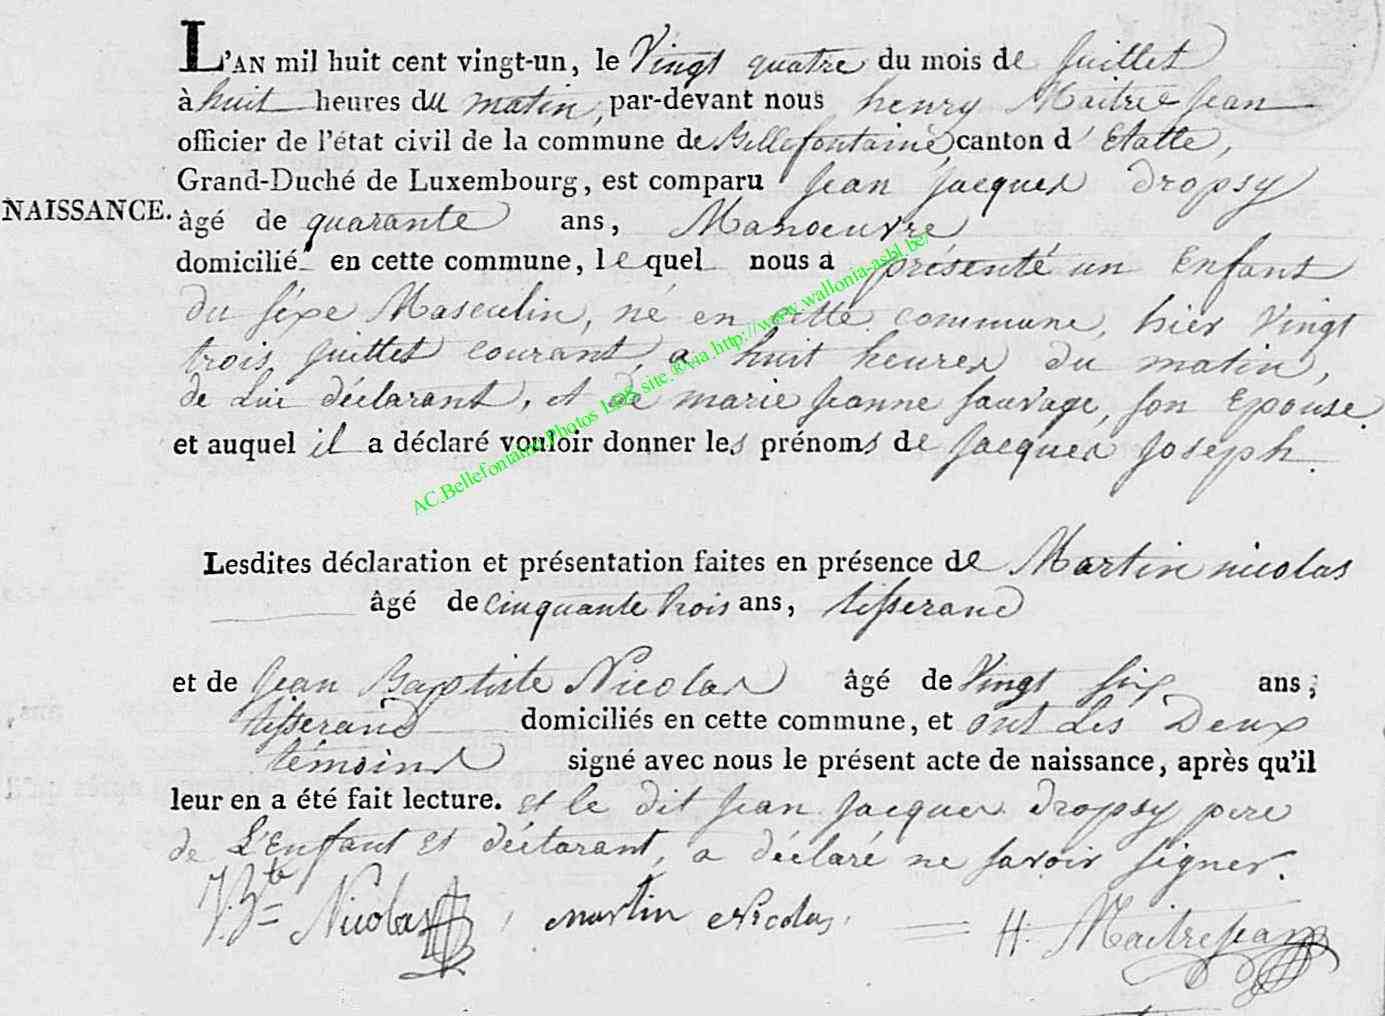 L'AN mil huit cent vingt-un, le Vingt quatre du mois de juillet
à huit heures du matin, par-devant nous henry Maitrejean
officier de l'état civil de la commune de Bellefontaine, canton d'Etalle,
Grand-Duché de Luxembourg, est comparu jean jacques dropsy
NAISSANCE. âgé de quarante ans, Manoeuvre
domicilié en cette commune, lequel nous a présenté un Enfant
du séxe Masculin, né en cette commune, hier Vingt
trois juillet courant, a huit heures du matin,
de Lui déclarant, et de marie jeanne sauvage, son Epouse.
et auquel il a déclaré vouloir donner les prénoms de jacques joseph.
AC.Bellefontaine.Photos
site.
via http://www.wallonia-asbl.be/
Lesdites déclaration et présentation faites en présence de Martin nicolas
âgé de cinquante trois ans, tisserand
et de jean Baptiste Nicolas âgé de Vingt six ans,
tisserand domiciliés en cette commune, et ont Les Deux
témoins signé avec nous le présent acte de naissance, après qu'il
leur en a été fait lecture. et le dit jean jacques dropsy pere
de L'Enfant et déclarant, a déclaré ne savoir signer.
J. Bte Nicolas, martin Nicolas, H. Maitrejean